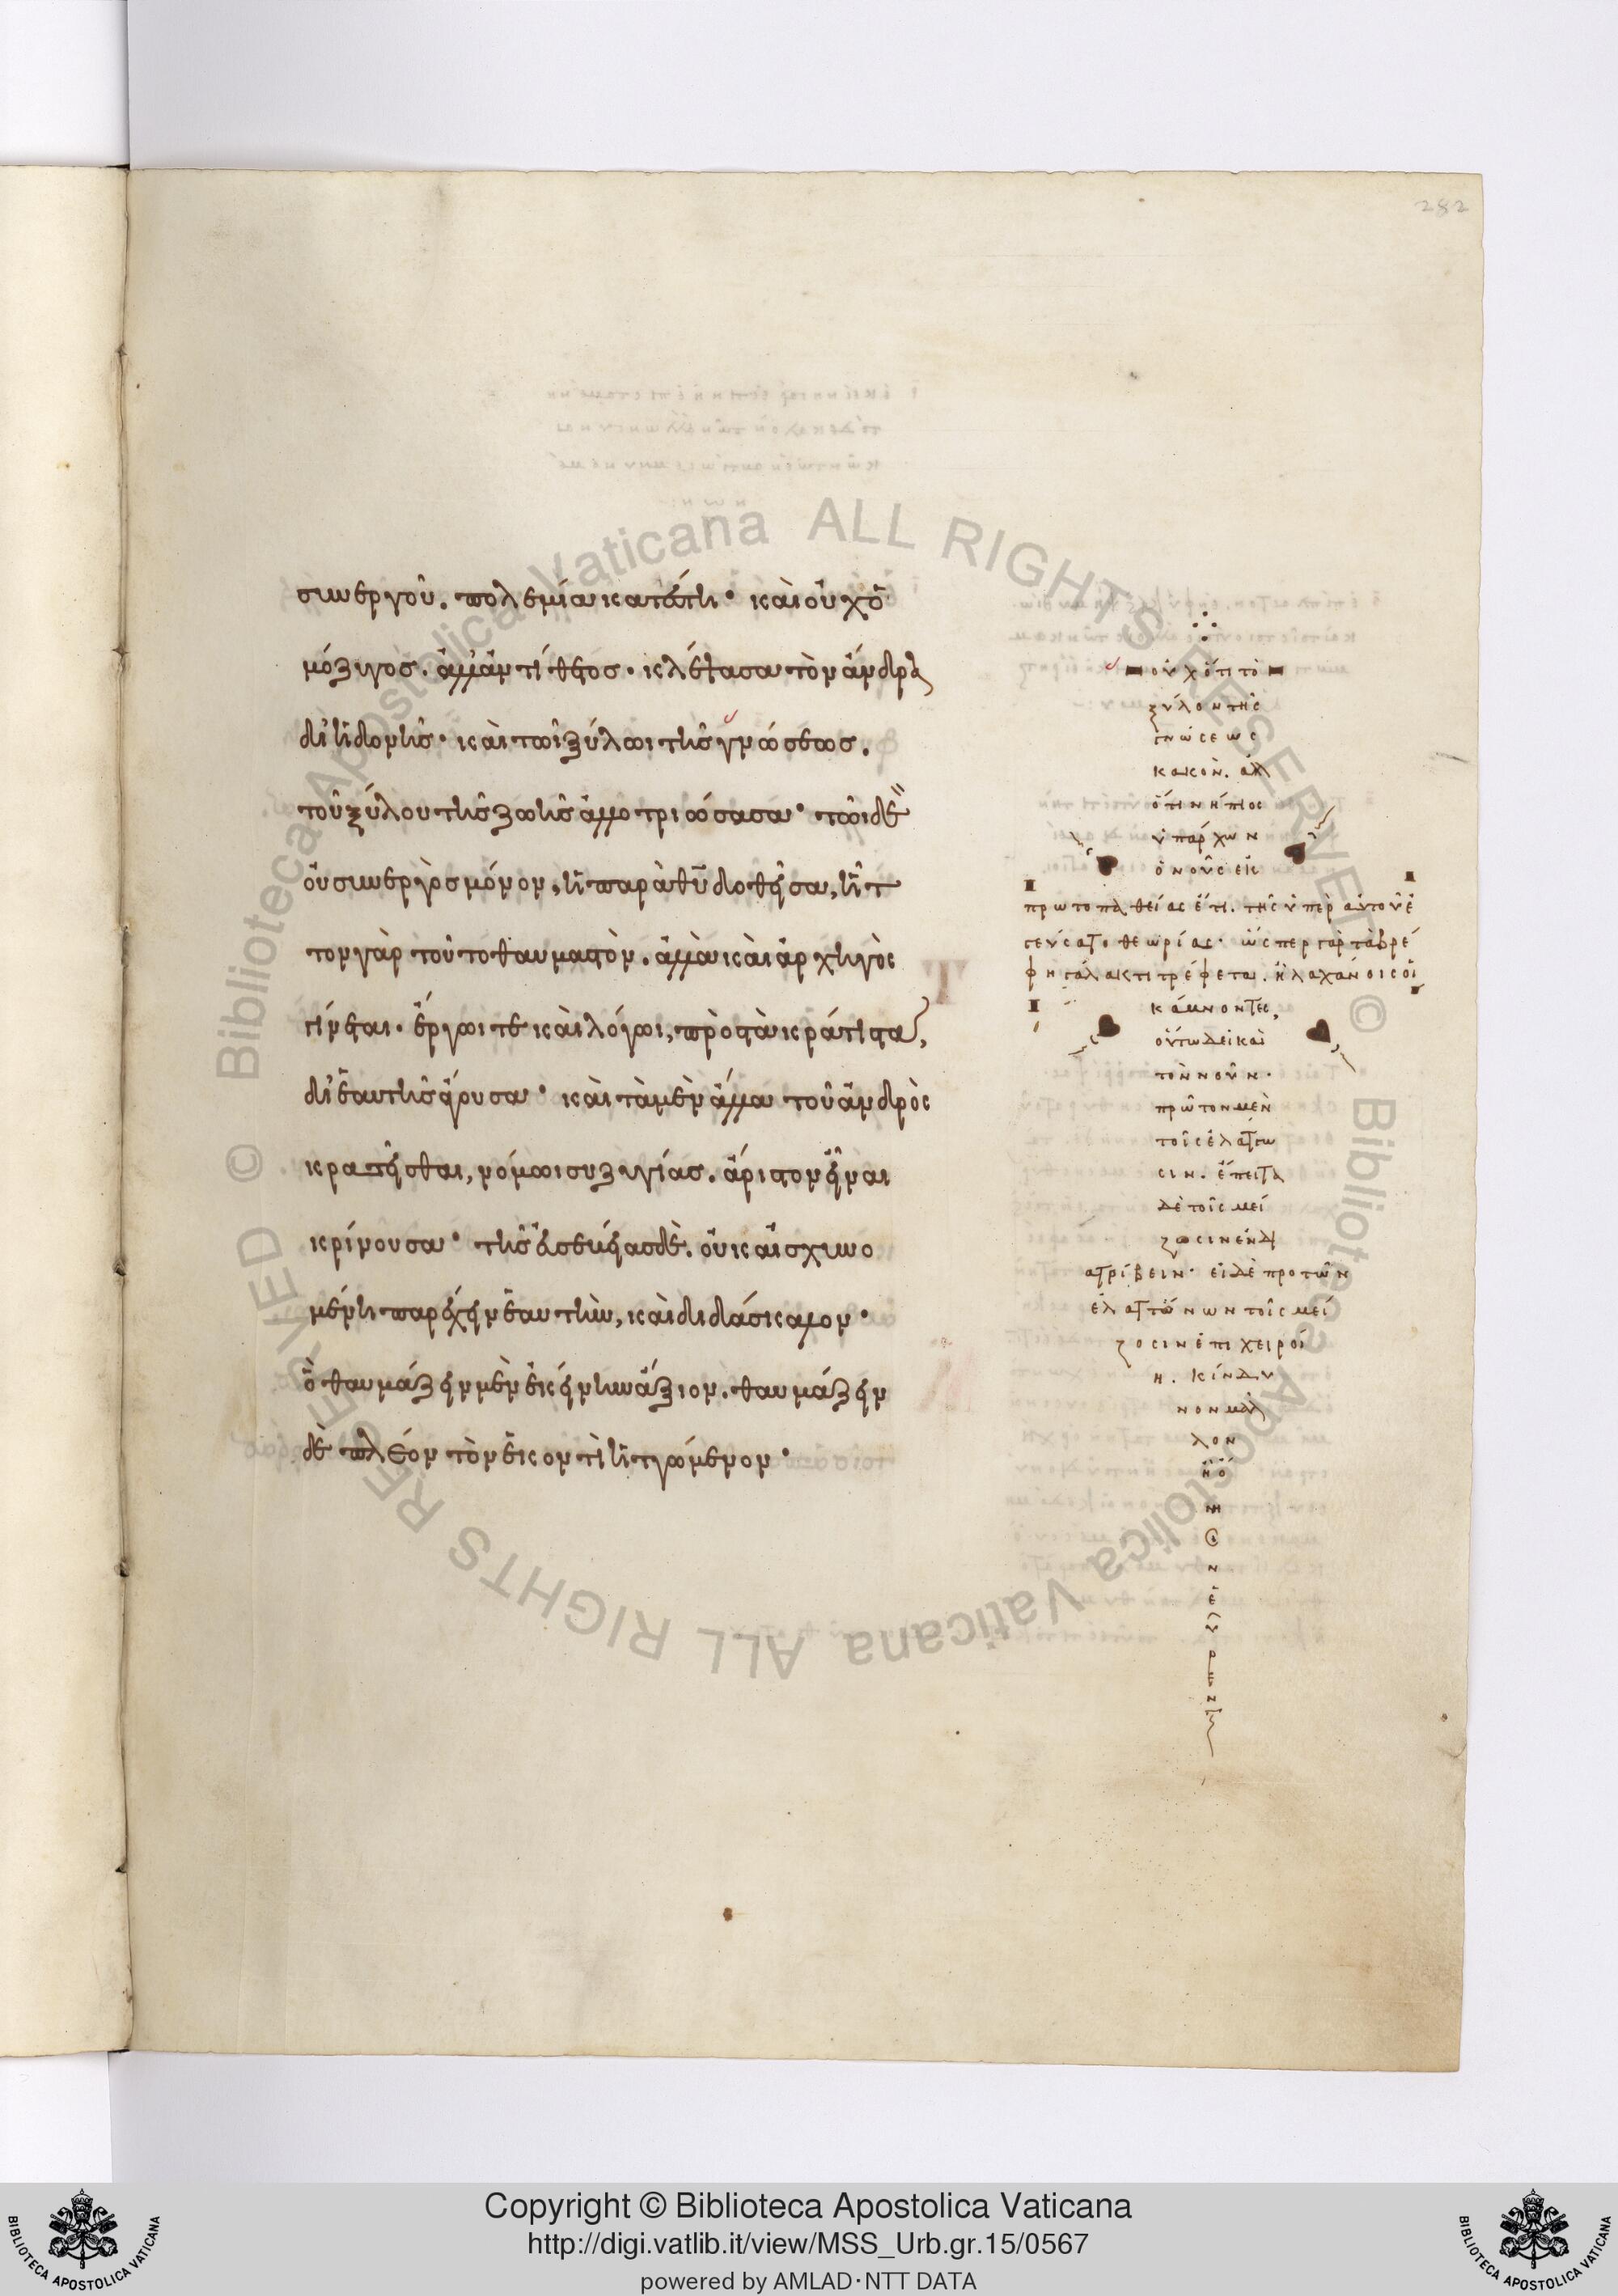 282
συνεργοῦ. πολεμία κατέστη· καὶ οὐχ ὁ
μόζυγος. ἀλλ' ἀντίθεος. κλέψασα τὸν ἄνδρα
δι' ἡδονῆς· καὶ τῶι ξύλωι τῆς γνώσεως.
τοῦ ξύλου τῆς ζωῆς ἀλλοτριώσασα· τῶι δὲ
οὐ συνεργὸς μόνον, ἡ παρὰ θυ δοθεῖσα, ἧτ
τον γὰρ τοῦτο θαυμαστὸν. ἀλλὰ καὶ ἀρχηγὸς
γίνεται. ἔργωι τε καὶ λόγωι, πρὸς τὰ κράτιστα,
δι' ἑαυτῆς ἄγουσα· καὶ τὰ μὲν ἄλλα τοῦ ἀνδρὸς
κρατεῖσθαι, νόμωι συζυγίας. ἄριστον εἶναι
κρίνουσα· τῆς εὐσεβείας δὲ. οὐκ αἰσχυνο
μένη παρέχειν ἑαυτὴν, καὶ διδάσκαλον·
ὃ θαυμάζειν μὲν ἐκείνην ἄξιον. θαυμάζειν
δὲ πλέον τὸν ἑκοντὶ ἡττώμενον·
οὐχ ὅτι τὸ
ξύλον τῆς
γνώσεως
κακὸν. ἀλλ
ὅτι νήπιος
ὑπάρχων
ὁ νοῦς εἰς
πρωτοπαθείας ἔτι. τῆς ὑπὲρ αὐτοῦ ἐ
γεύσατο θεωρίας· ὥσπερ γὰρ τὰ βρέ
φη γάλακτι τρέφεται. ἢ λαχάνοις οἱ
κάμνοντες,
οὕτω δεῖ καὶ
τὸν νοῦν.
πρῶτον μὲν
τοῖς ἐλάττω
σιν. ἔπειτα
δὲ τοῖς μεί
ζωσιν ἐνδι
ατρίβειν· εἰ δὲ πρὸ τῶν
ἐλαττώνων τοῖς μεί
ζοσιν ἐπιχειροί
η. κίνδυ
νον μᾶλ
λον
ἢ ὄ
νη
σι
ν
ἑ
υ
ρ
ε
ν
Copyright © Biblioteca Apostolica Vaticana
http://digi.vatlib.it/view/MSS_Urb.gr.15/0567
powered by AMLAD·NTT DATA
BIBLIOTECA APOSTOLICA VATICANA
BIBLIOTECA APOSTOLICA VATICANA
© Biblioteca Apostolica Vaticana ALL RIGHTS RESERVED
© Biblioteca Apostolica Vaticana ALL RIGHTS RESERVED